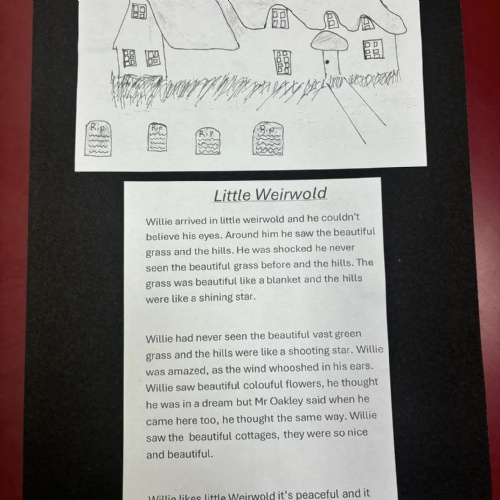 R.i.p
R.i.p
R.i.p
R.i.p
Little Weirwold
Willie arrived in little weirwold and he couldn't
believe his eyes. Around him he saw the beautiful
grass and the hills. He was shocked he never
seen the beautiful grass before and the hills. The
grass was beautiful like a blanket and the hills
were like a shining star.
Willie had never seen the beautiful vast green
grass and the hills were like a shooting star. Willie
was amazed, as the wind whooshed in his ears.
Willie saw beautiful colouful flowers, he thought
he was in a dream but Mr Oakley said when he
came here too, he thought the same way. Willie
saw the beautiful cottages, they were so nice
and beautiful.
Willie likes little Weirwold it's peaceful and it